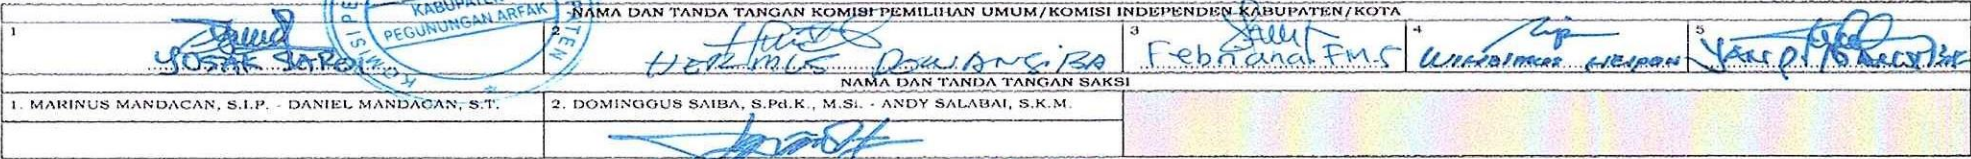 KABUPATEN
PEGUNUNGAN ARFAK
NAMA DAN TANDA TANGAN KOMISI PEMILIHAN UMUM/KOMISI INDEPENDEN KABUPATEN/KOTA
1 2 3 4 5
YOSAK SAROI HERMUS Febriana F.M.S
NAMA DAN TANDA TANGAN SAKSI
1. MARINUS MANDACAN, S.I.P. - DANIEL MANDACAN, S.T. 2. DOMINGGUS SAIBA, S.Pd.K., M.Si. - ANDY SALABAI, S.K.M.